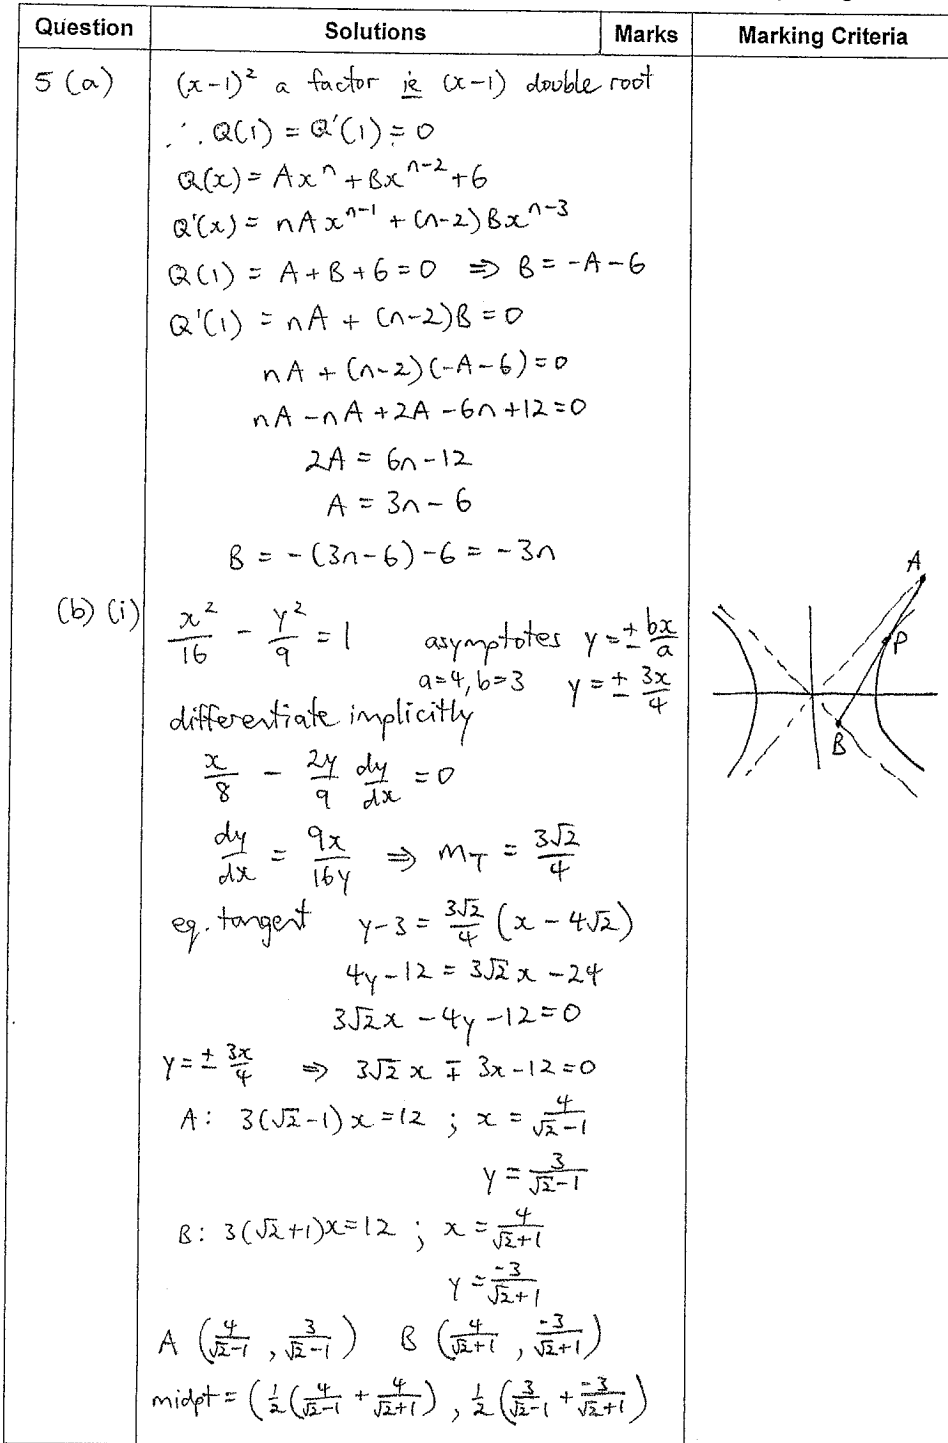 Question Solutions Marks Marking Criteria
5 (a) (x-1)² a factor ie (x-1) double root
∴ Q(1) = Q'(1) = 0
Q(x) = Axⁿ + Bxⁿ⁻² + 6
Q'(x) = nAxⁿ⁻¹ + (n-2)Bxⁿ⁻³
Q(1) = A + B + 6 = 0 ⇒ B = -A-6
Q'(1) = nA + (n-2)B = 0
nA + (n-2)(-A-6) = 0
nA - nA + 2A - 6n + 12 = 0
2A = 6n - 12
A = 3n - 6
B = -(3n-6) - 6 = -3n
(b) (i) x²/16 - y²/9 = 1 asymptotes y = ± bx/a
a=4, b=3 y = ± 3x/4
differentiate implicitly
x/8 - 2y/9 dy/dx = 0
dy/dx = 9x/16y ⇒ m_T = 3√2/4
eq. tangent y-3 = 3√2/4 (x - 4√2)
4y - 12 = 3√2 x - 24
3√2x - 4y - 12 = 0
y = ± 3x/4 ⇒ 3√2 x ∓ 3x - 12 = 0
A: 3(√2-1)x = 12 ; x = 4/(√2-1)
y = 3/(√2-1)
B: 3(√2+1)x = 12 ; x = 4/(√2+1)
y = -3/(√2+1)
A (4/(√2-1), 3/(√2-1)) B (4/(√2+1), -3/(√2+1))
midpt = (½(4/(√2-1) + 4/(√2+1)), ½(3/(√2-1) + -3/(√2+1))
A
P
B